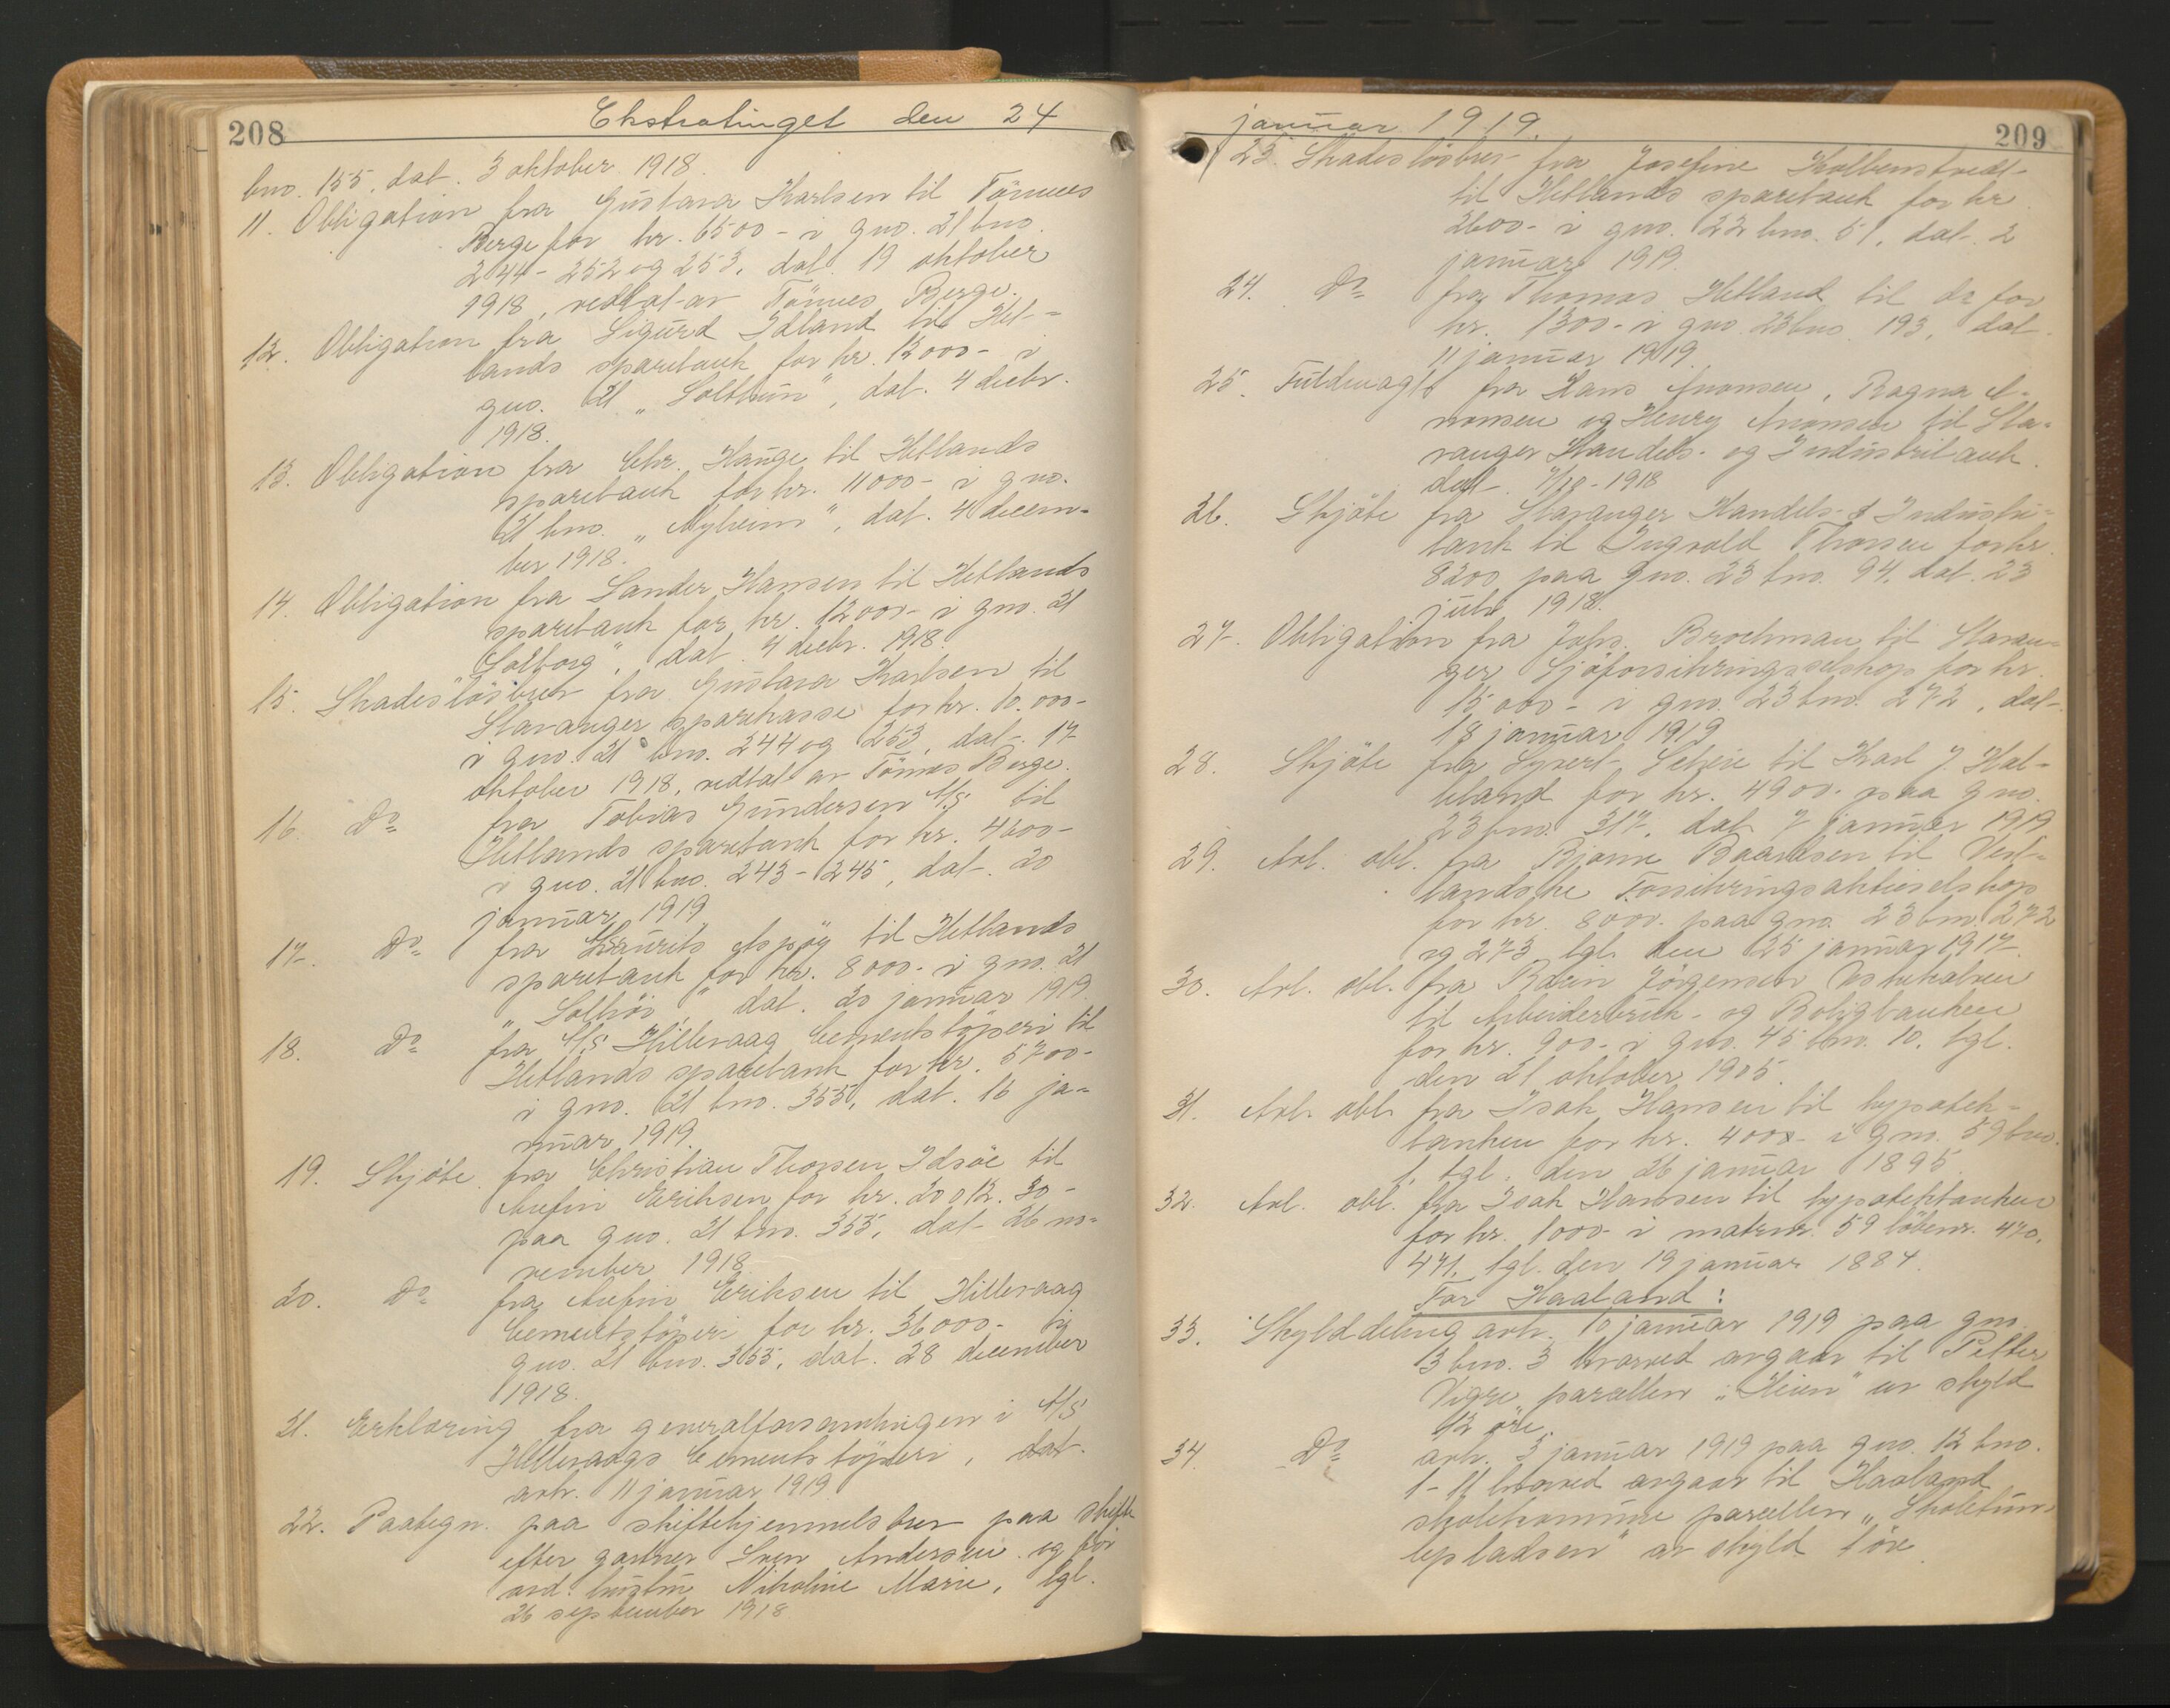 208
Ekstratinget den 24
bno. 155, dat. 3 oktober 1918.
11. Obligation fra Gustava Karlsen til Tönnes
Berge for kr. 6500- i gno. 21 bno.
244-252 og 253, dat. 19 oktober
1918, vedtat av Tönnes Berge.
12. Obligation fra Sigurd Idland til Het-
lands sparebank for kr. 12000- i
gno. 21 „Soltun", dat. 4 decbr.
1918.
13. Obligation fra Chr. Hauge til Hetlands
sparebank for kr. 11000- i gno.
21 bno. „Nyheim", dat. 4 decem-
ber 1918.
14. Obligation fra Sander Hansen til Hetlands
sparebank for kr. 12000- i gno. 21
„Solborg", dat. 4 decbr. 1918.
15. Skadeslösbrev fra Gustava Karlsen til
Stavanger sparekasse for kr. 10.000-
i gno. 21 bno. 244 og 253, dat. 17
oktober 1918, vedtat av Tönnes Berge.
16. Do fra Tobias Gundersen A/S til
Hetlands sparebank for kr. 4600-
i gno. 21 bno. 243-245, dat. 20
januar 1919.
17. Do fra Laurits Aspöy til Hetlands
sparebank for kr. 8000- i gno. 21
„Solhöi" dat. 20 januar 1919.
18. Do fra A/S Hillevaag Cementstöperi til
Hetlands sparebank for kr. 5700-
i gno. 21 bno. 355, dat. 16 ja-
nuar 1919.
19. Skjöte fra Christian Thorsen Idsöe til
Anfin Eriksen for kr. 20012.30-
paa gno. 21 bno. 355, dat. 26 no-
vember 1918.
20. Do fra Anfin Eriksen til Hillevaag
Cementstöperi for kr. 36000- i
gno. 21 bno. 355, dat. 28 december
1918.
21. Erklæring fra generalforsamlingen i A/S
Hillevaags Cementstöperi, dat.
avh. 11 januar 1919.
22. Paategn. paa skiftehjemmelsbrev paa skifte
efter gartner Sven Andersen og för
avd. hustru Nikoline Marie, tgl.
26 september 1918
januar 1919.
209
23. Skadeslösbrev fra Josefine Kolbenstvedt
til Hetlands sparebank for kr.
2600- i gno. 22 bno. 51, dat. 2
januar 1919.
24. Do fra Thomas Hetland til do for
kr. 1300- i gno. 23 bno. 193, dat.
11 januar 1919.
25. Fuldmagt fra Hans Anonsen, Ragna A-
nonsen og Henry Anonsen til Sta-
vanger Handels- og Industribank.
dat. 7/10-1918
26. Skjöte fra Stavanger Handels- & Industri-
bank til Ingvald Thorsen for kr.
8200 paa gno. 23 bno. 94, dat. 23
juli 1918.
27. Obligation fra Johs. Brochman til Stavan-
ger Sjöforsikringsselskap for kr.
15000- i gno. 23 bno. 272, dat.
18 januar 1919
28. Skjöte fra Syvert Scheie til Karl J. Hal-
leland for kr. 4900- paa gno.
23 bno. 317, dat. 7 januar 1919.
29. Avl. obl. fra Bjarne Baardsen til Vest-
landske Forsikringsaktieselskap
for kr. 8000- paa gno. 23 bno. 272
og 273 tgl. den 25 januar 1917.
30. Avl. obl. fra Jörgensen
til Arbeiderbruk- og Boligbanken
for kr. 900- i gno. 45 bno. 10, tgl.
den 21 oktober 1905.
31. Avl. obl. fra Isak Hansen til hypotek-
banken for kr. 4000- i gno. 59 bno.
1, tgl. den 26 januar 1895.
32. Avl. obl. fra Isak Hansen til hypotekbanken
for kr. 1000- i matrnr. 59 löbenr. 470,
471, tgl. den 19 januar 1884.
For Haaland:
33. Skylddeling avh. 10 januar 1919 paa gno.
13 bno. 3 hvorved avgaar til Petter
Vigre parcellen „Heien" av skyld
12 öre.
34. Do avh. 3 januar 1919 paa gno. 12 bno.
1-11 hvorved avgaar til Haaland
skolekommune parcellen „Skoletun-
lepladsen" av skyld 1 öre